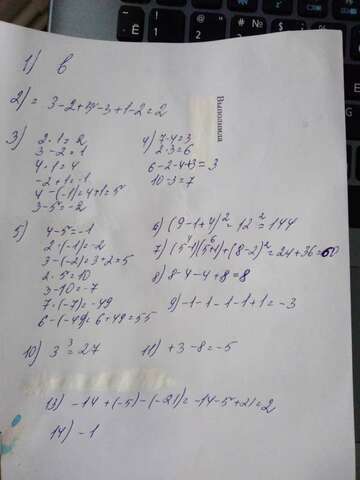 1) в
2) = 3-2+3-3+1-2=2
3) 2·1=2
3-2=1
4·1=4
-2+1=-1
4-(-1)=4+1=5
3-5=-2
4) 7-4=3
2·3=6
6-2-4+3=3
10-3=7
Выполнила
5) 4-5=-1
2·(-1)=-2
3-(-2)=3+2=5
2·5=10
3-10=-7
7·(-7)=-49
6-(-49)=6+49=55
6) (9-1+4)²=12²=144
7) (5-1)(5+1)+(8-2)²=24+36=60
8) 8-4-4+8=8
9) -1-1-1-1+1=-3
10) 3³=27
11) +3-8=-5
13) -14+(-5)-(-21)=-14-5+21=2
14) -1